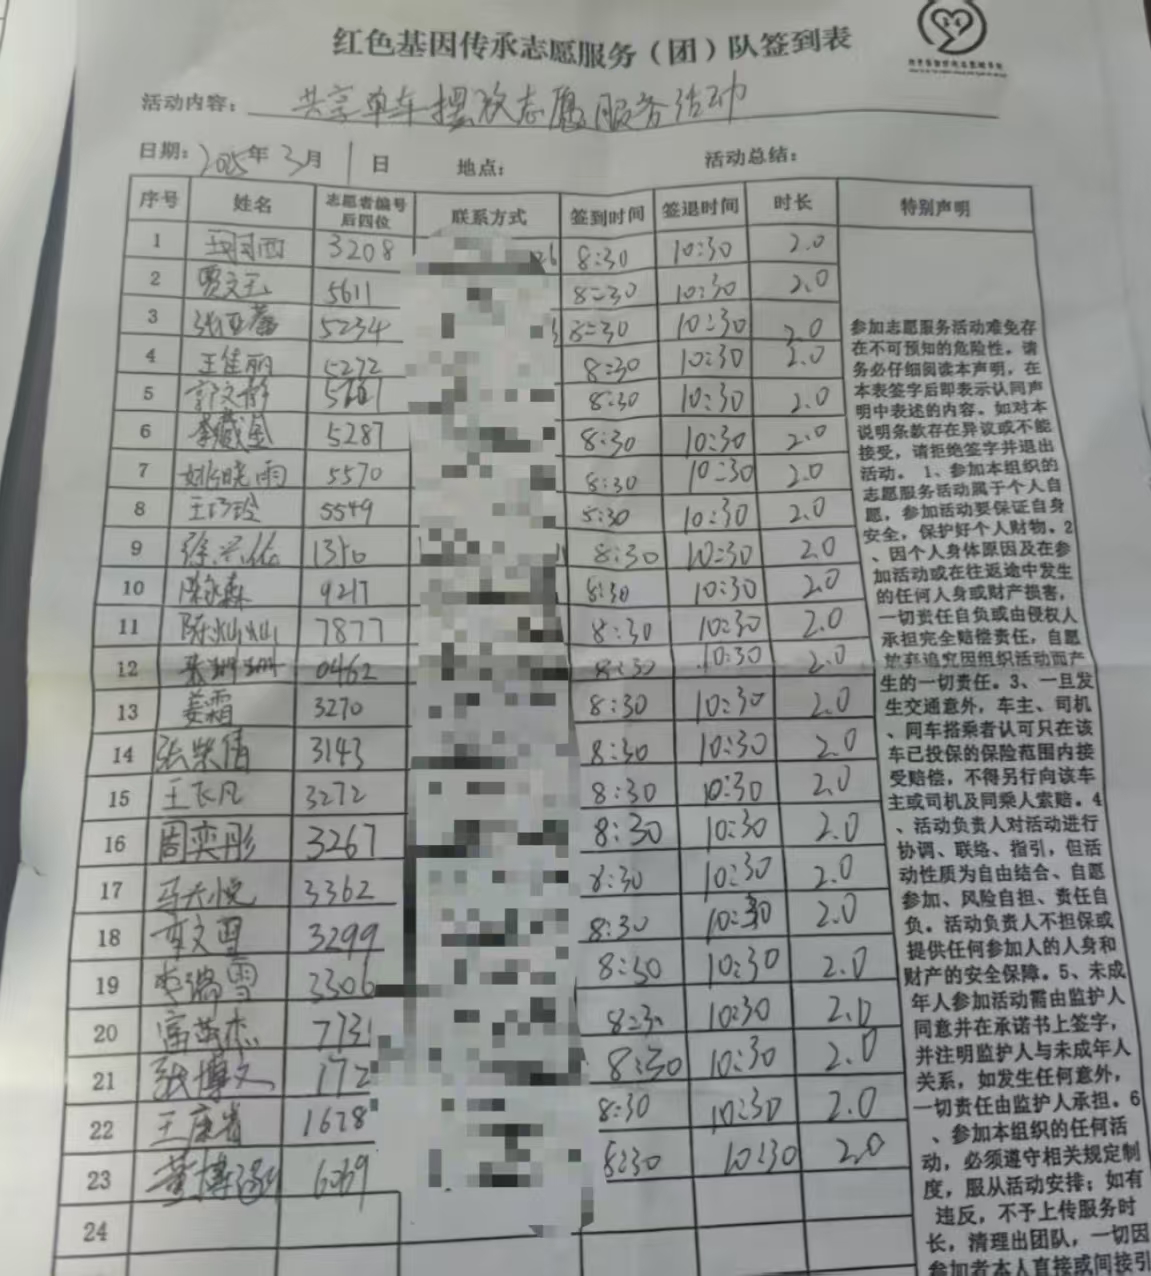 红色基因传承志愿服务（团）队签到表
活动内容： 共享单车摆放志愿服务活动
日期：2025年3月1日 地点： 活动总结：
序号 姓名 志愿者编号后四位 联系方式 签到时间 签退时间 时长 特别声明
1 3208 26 8:30 10:30 2.0
2 贾文玉 5611 8:30 10:30 2.0
3 张亚蕾 5234 8:30 10:30 2.0
4 王佳丽 5272 8:30 10:30 2.0
5 郭文静 8:30 10:30 2.0
6 5287 8:30 10:30 2.0
7 姚晓雨 5570 8:30 10:30 2.0
8 王巧玲 5549 8:30 10:30 2.0
9 1350 8:30 10:30 2.0
10 陈永森 9217 8:30 10:30 2.0
11 陈灿灿 7877 8:30 10:30 2.0
12 朱珊珊 0462 8:30 10:30 2.0
13 姜霜 3270 8:30 10:30 2.0
14 张紫倩 3143 8:30 10:30 2.0
15 王飞凡 3272 8:30 10:30 2.0
16 周奕彤 3267 8:30 10:30 2.0
17 马天悦 3362 8:30 10:30 2.0
18 李文雪 3299 8:30 10:30 2.0
19 李瑞雪 3306 8:30 10:30 2.0
20 高英杰 7731 8:30 10:30 2.0
21 张博文 172 8:30 10:30 2.0
22 王康省 1628 8:30 10:30 2.0
23 董博 6069 8:30 10:30 2.0
24
参加志愿服务活动难免存
在不可预知的危险性。请
务必仔细阅读本声明，在
本表签字后即表示认同声
明中表述的内容。如对本
说明条款存在异议或不能
接受，请拒绝签字并退出
活动。 1、参加本组织的
志愿服务活动属于个人自
愿，参加活动要保证自身
安全，保护好个人财物。2
、因个人身体原因及在参
加活动或在往返途中发生
的任何人身或财产损害，
一切责任自负或由侵权人
承担完全赔偿责任，自愿
放弃追究因组织活动而产
生的一切责任。3、一旦发
生交通意外，车主、司机
、同车搭乘者认可只在该
车已投保的保险范围内接
受赔偿，不得另行向该车
主或司机及同乘人索赔。4
、活动负责人对活动进行
协调、联络、指引，但活
动性质为自由结合、自愿
参加、风险自担、责任自
负。活动负责人不担保或
提供任何参加人的人身和
财产的安全保障。5、未成
年人参加活动需由监护人
同意并在承诺书上签字，
并注明监护人与未成年人
关系，如发生任何意外，
一切责任由监护人承担。6
、参加本组织的任何活
动，必须遵守相关规定制
度，服从活动安排；如有
违反，不予上传服务时
长，清理出团队，一切因
参加者本人直接或间接引